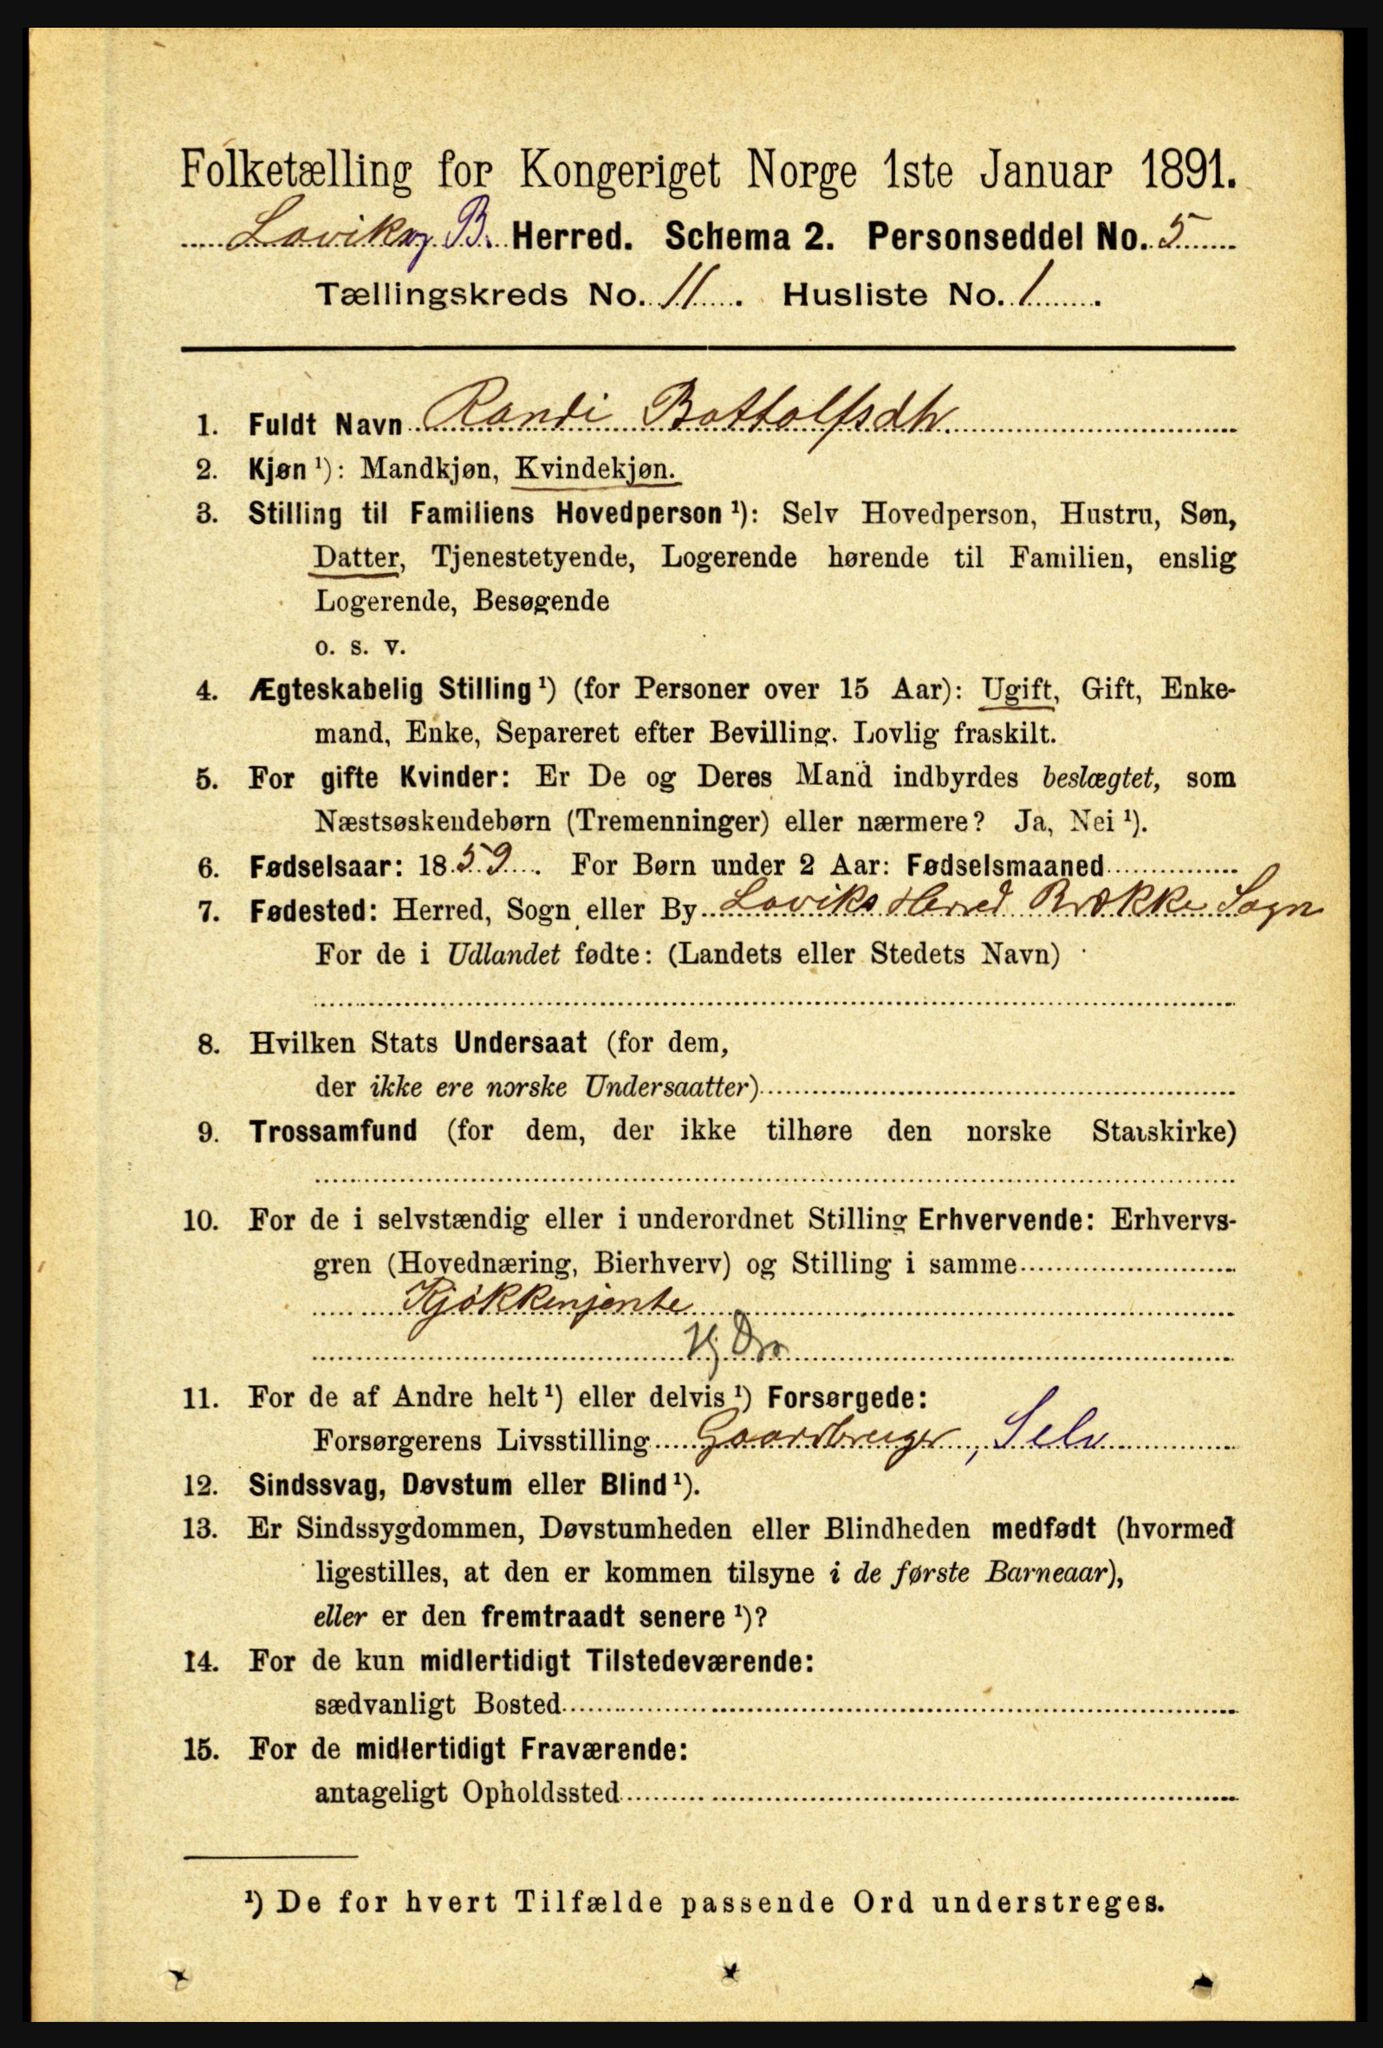 Folketælling for Kongeriget Norge 1ste Januar 1891.
Lavik og B. Herred. Schema 2. Personseddel No. 5
Tællingskreds No. 11. Husliste No. 1.
1. Fuldt Navn Randi Bottolfsdtr.
2. Kjøn ¹): Mandkjøn, Kvindekjøn.
3. Stilling til Familiens Hovedperson ¹): Selv Hovedperson, Hustru, Søn,
Datter, Tjenestetyende, Logerende hørende til Familien, enslig
Logerende, Besøgende
o. s. v.
4. Ægteskabelig Stilling ¹) (for Personer over 15 Aar): Ugift, Gift, Enke-
mand, Enke, Separeret efter Bevilling. Lovlig fraskilt.
5. For gifte Kvinder: Er De og Deres Mand indbyrdes beslægtet, som
Næstsøskendebørn (Tremenninger) eller nærmere? Ja, Nei ¹).
6. Fødselsaar: 1859. For Børn under 2 Aar: Fødselsmaaned
7. Fødested: Herred, Sogn eller By Laviks Herred Brække Sogn
For de i Udlandet fødte: (Landets eller Stedets Navn)
8. Hvilken Stats Undersaat (for dem,
der ikke ere norske Undersaatter)
9. Trossamfund (for dem, der ikke tilhøre den norske Statskirke)
10. For de i selvstændig eller i underordnet Stilling Erhvervende: Erhvervs-
gren (Hovednæring, Bierhverv) og Stilling i samme
Kjøkkenjente
11. For de af Andre helt ¹) eller delvis ¹) Forsørgede:
Forsørgerens Livsstilling Gaardbruger, Selv
12. Sindssvag, Døvstum eller Blind ¹).
13. Er Sindssygdommen, Døvstumheden eller Blindheden medfødt (hvormed
ligestilles, at den er kommen tilsyne i de første Barneaar),
eller er den fremtraadt senere ¹)?
14. For de kun midlertidigt Tilstedeværende:
sædvanligt Bosted
15. For de midlertidigt Fraværende:
antageligt Opholdssted
¹) De for hvert Tilfælde passende Ord understreges.